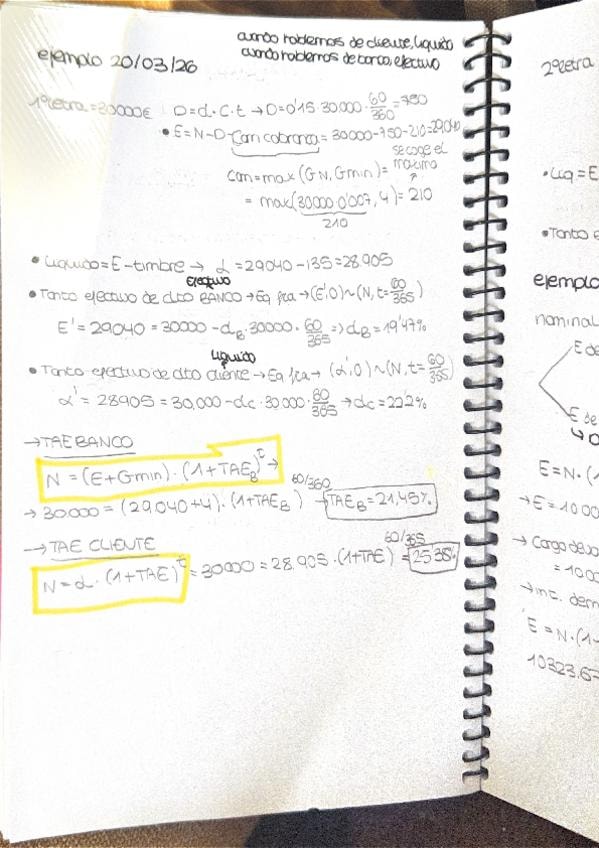 cuando hablemos de cliente, líquido
cuando hablemos de banco, efectivo
ejemplo 20/03/26
1ª letra = 30000€ D=d·C·t → D=0'15·30.000·60/360=750
• E=N-D-Com cobranza = 30000-750-210=29040
se coge el
máximo
com=max(GN,Gmin)=
= max(30000·0'007, 4)= 210
210
• Líquido=E-timbre → L =29040-135=28.905
Efectivo
• Tanto efectivo de dto BANCO → Eq fca → (E',0)~(N,t=60/365)
E' = 29040 = 30000-dB·30000·60/365 => dB=19'47%
Líquido
• Tanto efectivo de dto cliente → Eq fca → (L',0)~(N,t=60/365)
L' = 28905 = 30.000-dc·30.000·60/365 → dc=22'2%
→ TAE BANCO
N = (E+Gmin)·(1+TAEB)^t →
→ 30000=(29.040+4)·(1+TAEB)^60/360 → TAEB=21,45%
→ TAE CLIENTE
N=L·(1+TAE)^t = 30000 = 28.905·(1+TAE)^60/365 = 25'38%
2ª letra
• Liq=E
• Tanto e
ejemplo
nominal
E de
E de
E=N·(1
→ E=1000
→ Cargo
=100
→ int. dem
E=N·(1-
10323,67